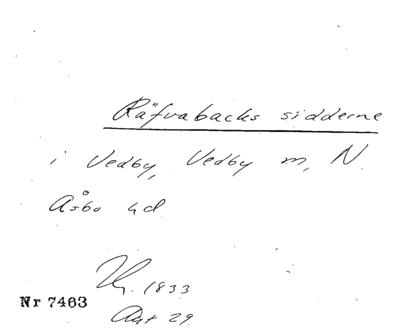 Räfvabacks sidderne
i Vedby, Vedby m, N.
Åsbo hd
1833
Nr 7463
Art 29